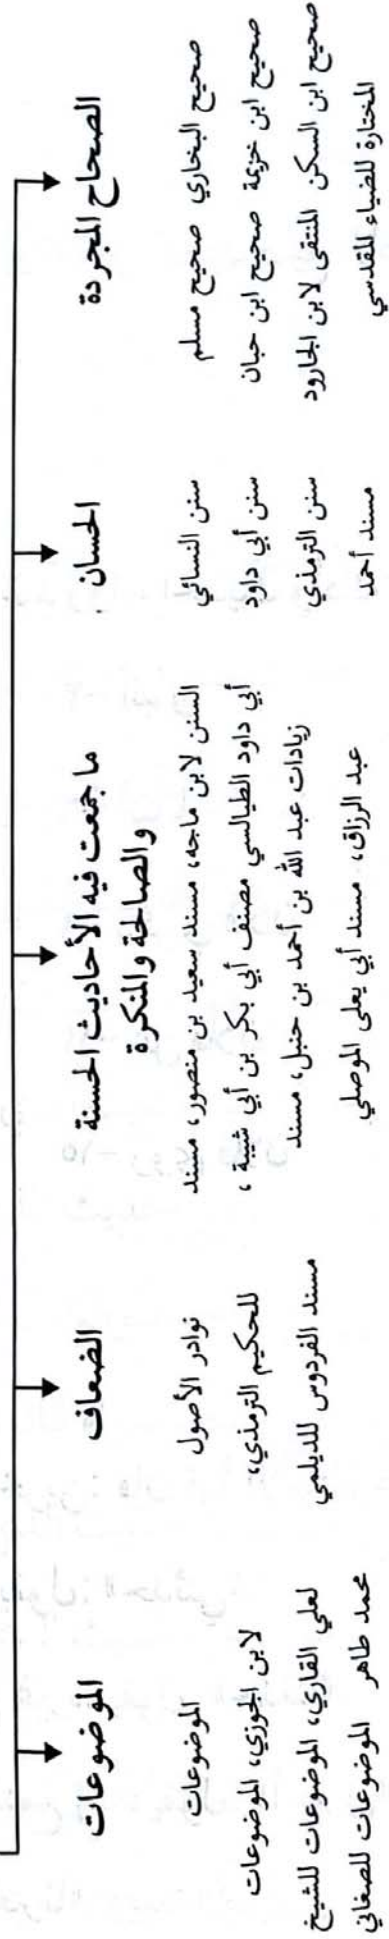 الصحاح المجردة
صحيح البخاري صحيح مسلم
صحيح ابن خزيمة صحيح ابن حبان
صحيح ابن السكن المنتقى لابن الجارود
المختارة للضياء المقدسي
الحسان
سنن النسائي
سنن أبي داود
سنن الترمذي
مسند أحمد
ما جمعت فيه الأحاديث الحسنة
والصالحة والمنكرة
السنن لابن ماجه، مسند سعيد بن منصور، مسند
أبي داود الطيالسي مصنف أبي بكر بن أبي شيبة،
زيادات عبد الله بن أحمد بن حنبل، مسند
عبد الرزاق، مسند أبي يعلى الموصلي
الضعاف
نوادر الأصول
للحكيم الترمذي،
مسند الفردوس للديلمي
الموضوعات
الموضوعات
لابن الجوزي، الموضوعات
لعلي القاري، الموضوعات للشيخ
محمد طاهر الموضوعات للصغاني